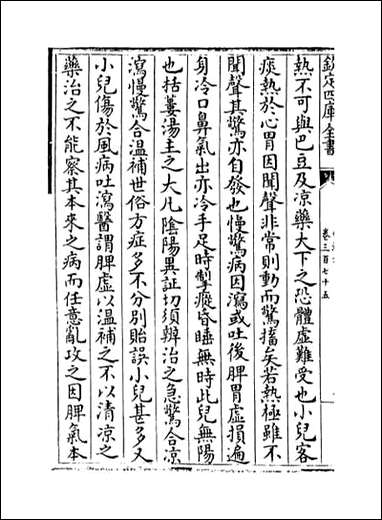 欽定四庫全書
卷三百七十五
熱不可與巴豆及凉藥大下之恐體虛難受也小兒客
痰熱於心胃因聞聲非常則動而驚搐矣若熱極雖不
聞聲其驚亦自發也慢驚病因瀉或吐後脾胃虛損遍
身冷口鼻氣出亦冷手足時掣瘲昏睡無時此兒無陽
也括蔞湯主之大凡陰陽異証切須辨治之急驚合凉
瀉慢驚合温補世俗方症多不分別貽誤小兒甚多又
小兒傷於風病吐瀉醫謂脾虛以温補之不以清凉之
藥治之不能察其本來之病而任意亂攻之因脾氣本